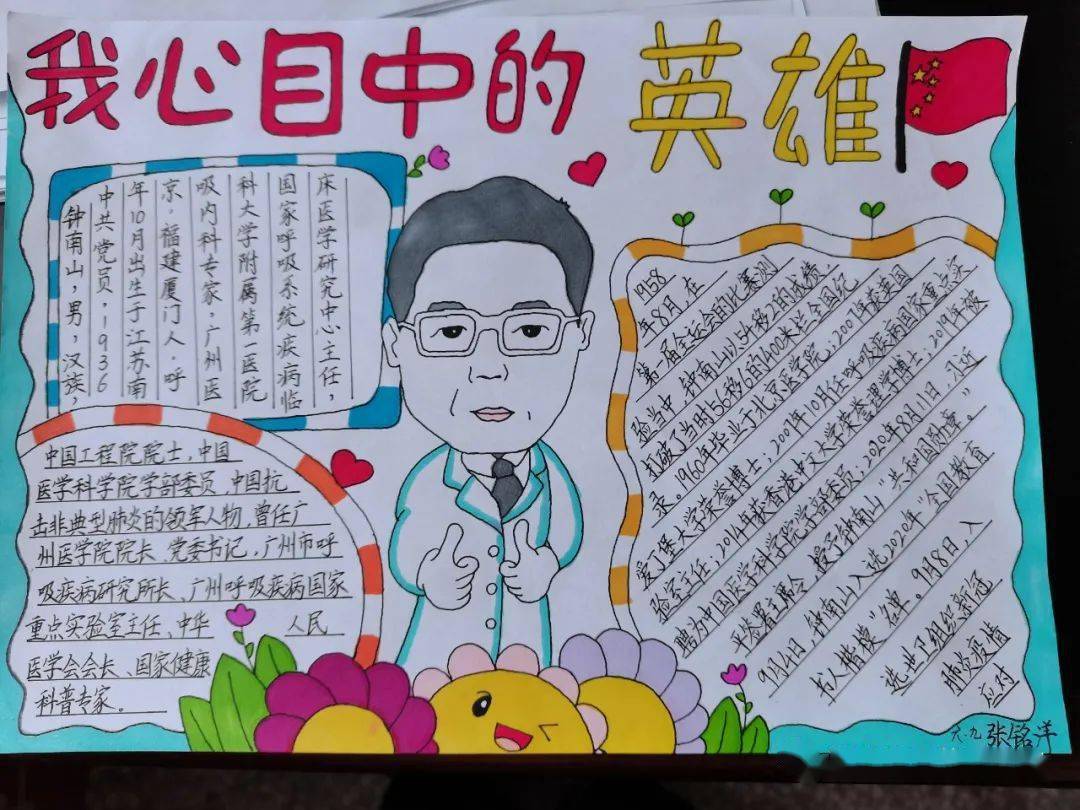 我心目中的英雄
钟南山，男，汉族，
中共党员，1936
年10月出生于江苏南
京，福建厦门人，呼
吸内科专家，广州医
科大学附属第一医院
国家呼吸系统疾病临
床医学研究中心主任，
中国工程院院士，中国
医学科学院学部委员，中国抗
击非典型肺炎的领军人物，曾任广
州医学院院长、党委书记，广州市呼
吸疾病研究所长、广州呼吸疾病国家
重点实验室主任、中华 人民
医学会会长、国家健康
科普专家。
1958
年8月，在
第一届全运会的比赛测
验当中，钟南山以54秒2的成绩，
打破了当时56秒6的400米栏全国纪
录。1960年毕业于北京医学院；2007年获英国
爱丁堡大学荣誉博士；2007年10月任呼吸疾病国家重点实
验室主任；2014年获香港中文大学荣誉理学博士；2019年被
聘为中国医学科学院学部委员；2020年8月11日，习近
平签署主席令，授予钟南山“共和国勋章”。
9月4日，钟南山入选2020年“全国教育
书人楷模”名单。9月8日，入
选世卫组织新冠
肺炎疫情
应对
六.九 张铭洋